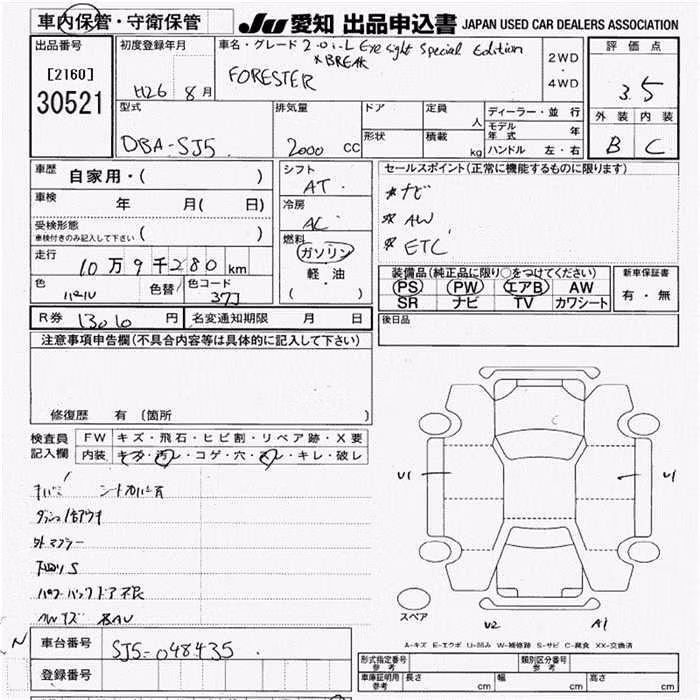 車内保管・守衛保管
JU 愛知 出品申込書 JAPAN USED CAR DEALERS ASSOCIATION
出品番号
[2160]
30521
初度登録年月
H26 8月
車名・グレード 2.0i-L Eye sight Special Edition
*BREAK
FORESTER
2WD
・
4WD
評価点
3.5
外装 内装
B C
型式
DBA-SJ5
排気量
2000 CC
ドア
形状
定員 人
積載 kg
ディーラー・並行
モデル年式 年
ハンドル 左・右
車歴 自家用・( )
車検 年 月( 日)
受検形態
車検付きのみ記入して下さい ( )
走行
10万9千280 km
色 色替 色コード
37J
シフト
AT
冷房
AC
燃料
ガソリン
軽・油
( )
セールスポイント(正常に機能するものに限ります)
*ナビ
* AW
* ETC
装備品(純正品に限り○をつけてください)
PS PW エアB AW
SR ナビ TV カワシート
新車保証書
有・無
R券 13010 円 名変通知期限 月 日
後日品
注意事項申告欄(不具合内容等は具体的に記入して下さい)
修復歴 有 〔箇所 〕
検査員記入欄
FW キズ・飛石・ヒビ割・リペア跡・X要
内装 キズ・汚レ・コゲ・穴・スレ・キレ・破レ
外マフラー
下廻りS
U1
U1
C
スペア
U2 A1
A-キズ E-エクボ U-凹み W-補修跡 S-サビ C-腐食 XX-交換済
N
車台番号 SJ5-048435
登録番号
形式指定番号 参考
類別区分番号 参考
車庫証明用 参考 長さ cm 幅 cm 高さ cm